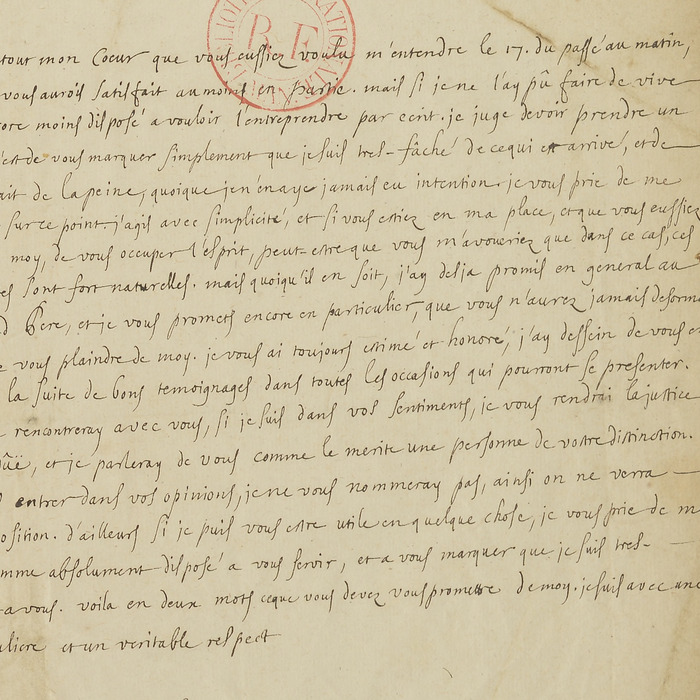 tout mon Coeur que vous eussiez voulu m'entendre le 17. du passé au matin,
vous aurois satisfait au moins en partie. mais si je ne l'ay pû faire de vive
ore moins disposé a vouloir l'entreprendre par ecrit. je juge devoir prendre un
est de vous marquer simplement que je suis tres-fâché de ce qui est arrivé, et de
ait de la peine, quoique je n'en aye jamais eu intention. je vous prie de me
sur ce point. j'agis avec simplicité, et si vous estiez en ma place, et que vous eussiez
moy, de vous occuper l'esprit, peut-estre que vous m'avoueriez que dans ce cas, ces
es sont fort naturelles. mais quoiqu'il en soit, j'ay desja promis en general au
d Pere, et je vous promets encore en particulier, que vous n'aurez jamais desorm
e vous plaindre de moy. je vous ai toujours estimé et honoré, j'ay dessein de vous en
la suite de bons temoignages dans toutes les occasions qui pourront se presenter.
rencontreray avec vous, si je suis dans vos sentiments, je vous rendrai la justice
dûë, et je parleray de vous comme le merite une personne de vostre distinction.
entrer dans vos opinions, je ne vous nommeray pas, ainsi on ne verra
osition. d'ailleurs si je puis vous estre utile en quelque chose, je vous prie de m
omme absolument disposé a vous servir, et a vous marquer que je suis tres-
a vous. voila en deux mots ce que vous devez vous promettre de moy. je suis avec une
uliere et un veritable respect
R F